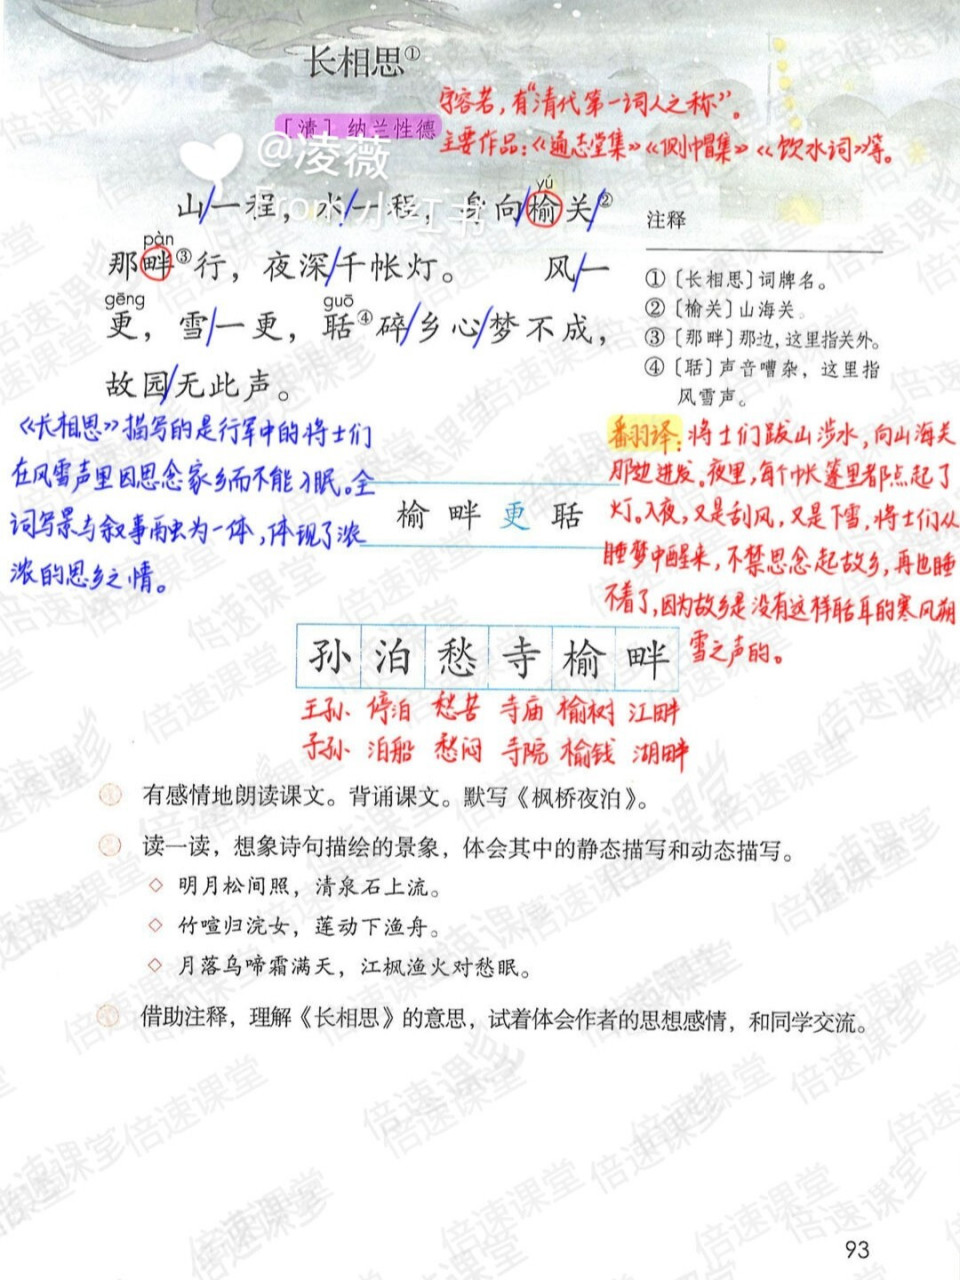 长相思①
[清] 纳兰性德
字容若，有“清代第一词人之称”。
主要作品:《通志堂集》《侧帽集》《饮水词》等。
@凌薇
From小红书
yú
山/一程，水/一程，身向/榆关/②
pàn
那畔③行，夜深/千帐灯。 风/一
gēng guō
更，雪/一更，聒④碎/乡心/梦不成，
故园/无此声。
注释
①〔长相思〕词牌名。
②〔榆关〕山海关。
③〔那畔〕那边，这里指关外。
④〔聒〕声音嘈杂，这里指
风雪声。
《长相思》描写的是行军中的将士们
在风雪声里因思念家乡而不能入眠。全
词写景与叙事融为一体，体现了浓
浓的思乡之情。
翻译:将士们跋山涉水，向山海关
那边进发。夜里，每个帐篷里都点起了
灯。入夜，又是刮风，又是下雪，将士们从
睡梦中醒来，不禁思念起故乡，再也睡
不着了，因为故乡是没有这样聒耳的寒风朔
雪之声的。
榆 畔 更 聒
孙 泊 愁 寺 榆 畔
王孙 停泊 愁苦 寺庙 榆树 江畔
子孙 泊船 愁闷 寺院 榆钱 湖畔
有感情地朗读课文。背诵课文。默写《枫桥夜泊》。
读一读，想象诗句描绘的景象，体会其中的静态描写和动态描写。
◇ 明月松间照，清泉石上流。
◇ 竹喧归浣女，莲动下渔舟。
◇ 月落乌啼霜满天，江枫渔火对愁眠。
借助注释，理解《长相思》的意思，试着体会作者的思想感情，和同学交流。
93
倍速课堂